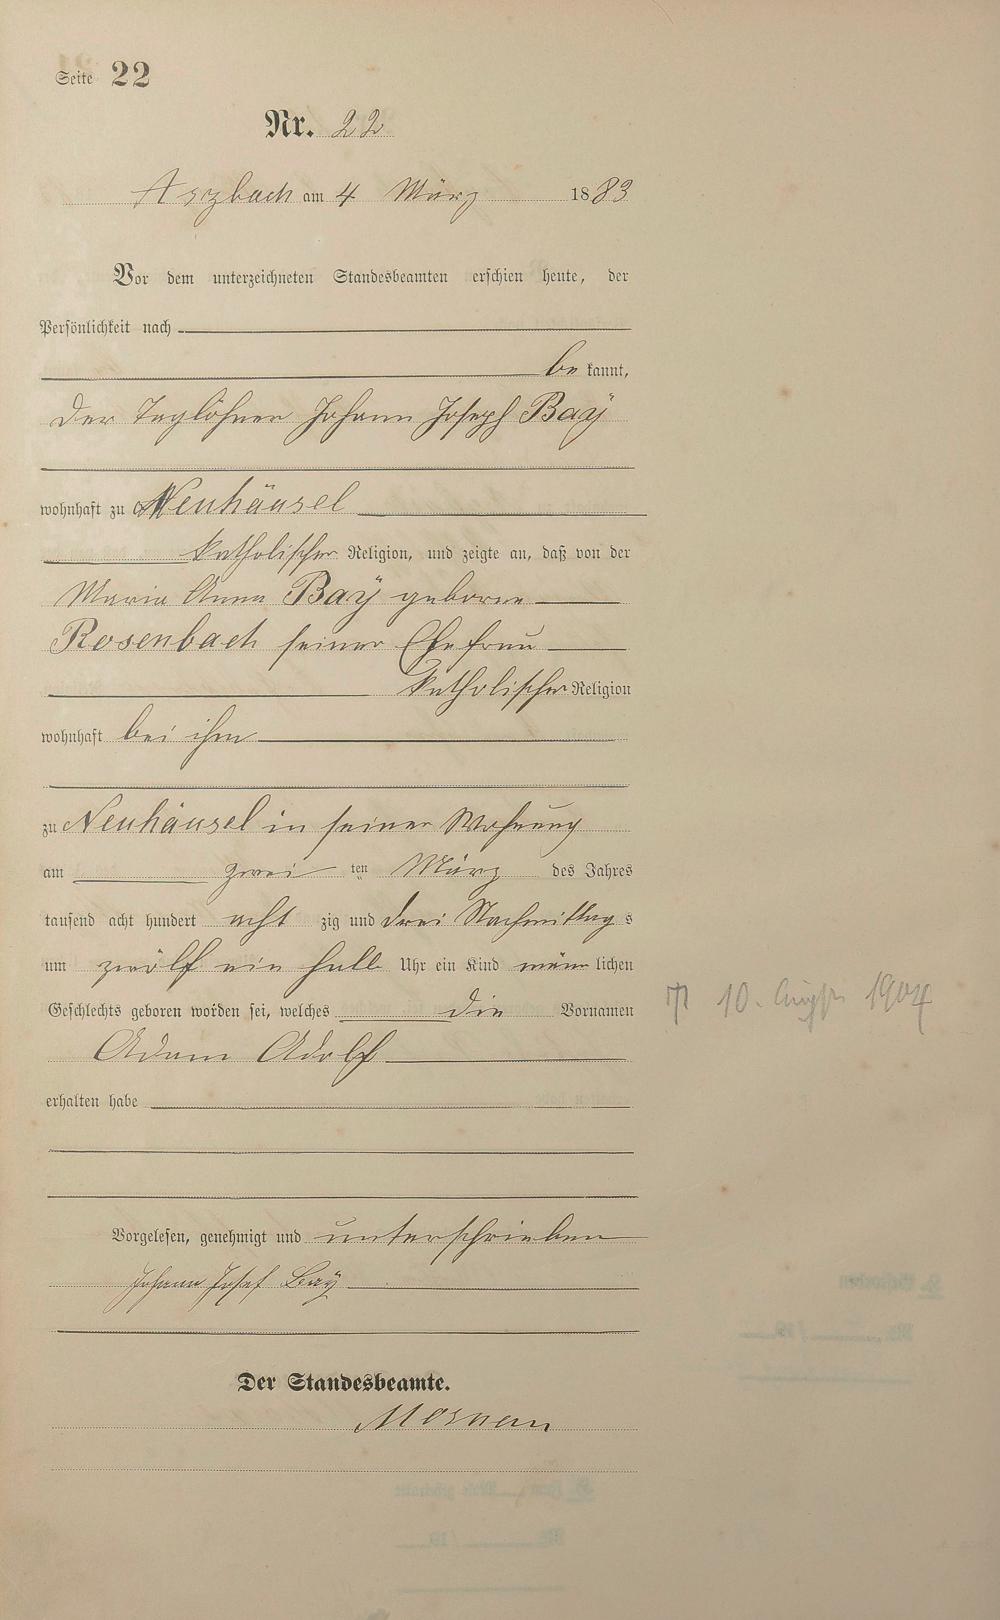 Seite 22
Nr. 22
Arzbach am 4 März 1883
Vor dem unterzeichneten Standesbeamten erschien heute, der
Persönlichkeit nach
be kannt,
der Taglöhner Johann Joseph Baÿ
wohnhaft zu Neuhäusel
katholischer Religion, und zeigte an, daß von der
Maria Anna Baÿ geborne
Rosenbach seiner Ehefrau
katholischer Religion
wohnhaft bei ihm
zu Neuhäusel in seiner Wohnung
am zwei ten März des Jahres
tausend acht hundert acht zig und drei Nachmittag s
um zwölf ein halb Uhr ein Kind männ lichen
Geschlechts geboren worden sei, welches die Vornamen
Adam Adolf
erhalten habe
10. August 1904
Vorgelesen, genehmigt und unterschrieben
Johann Josef Baÿ
Der Standesbeamte.